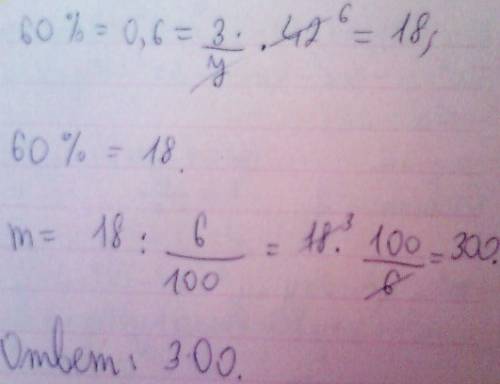 60% = 0,6 = 3/7 · 42 6 = 18,
60% = 18.
m = 18 : 6/100 = 18 3 · 100/6 = 300.
Ответ: 300.